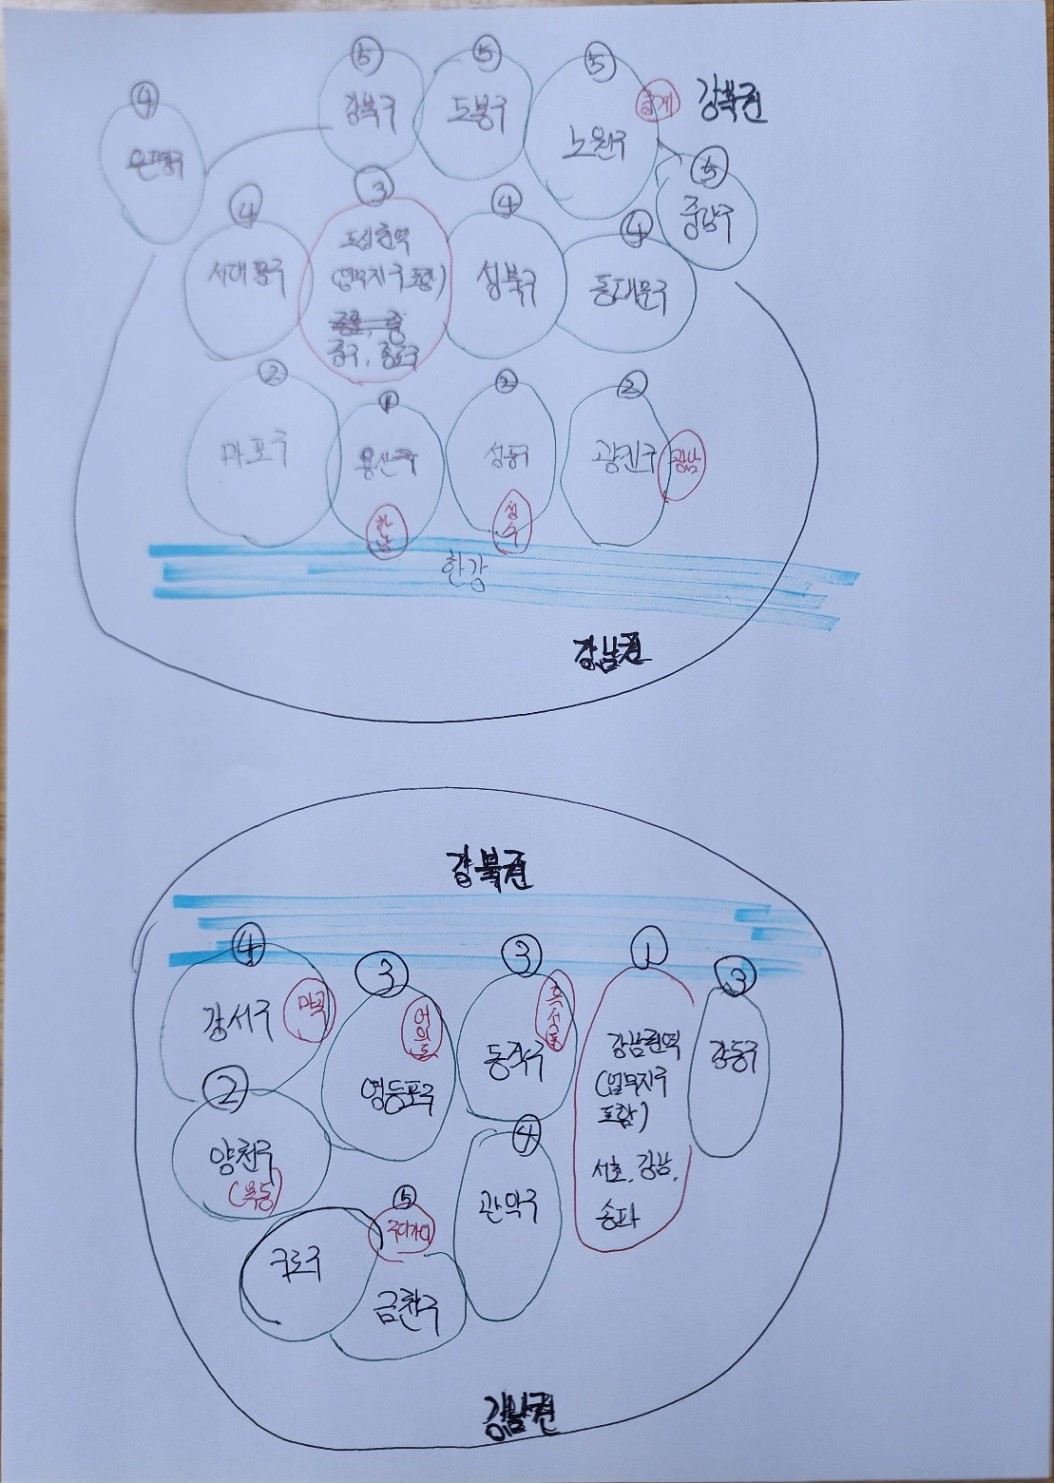 ⑤
⑤
⑤
④
강북구
도봉구
노원구
하계
강북권
은평구
⑤
중랑구
④
③
④
④
서대문구
도심권역
(업무지구 포함)
중구, 종로구
성북구
동대문구
②
①
②
②
마포구
용산구
성동구
광진구
광남
한남
성수
한강
강남권
강북권
④
③
③
①
③
강서구
마곡
여의도
흑석동
영등포구
동작구
강남권역
(업무지구
포함)
서초, 강남,
송파
강동구
②
양천구
(목동)
④
관악구
⑤
구디가디
구로구
금천구
강남권